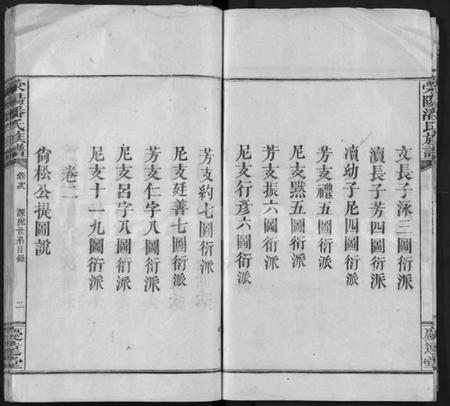 滎陽潘氏族譜
慶運堂
文長子泳三圖衍派
濆長子芳四圖衍派
濆幼子尼四圖衍派
芳支禮五圖衍派
尼支㷱五圖衍派
芳支振六圖衍派
尼支行彥六圖衍派
芳支約七圖衍派
尼支廷善七圖衍派
芳支仁字八圖衍派
尼支呂字八圖衍派
尼支十一九圖衍派
卷二
尙松公提圖說
滎陽潘氏族譜
卷次
源流世系目錄
二
慶運堂